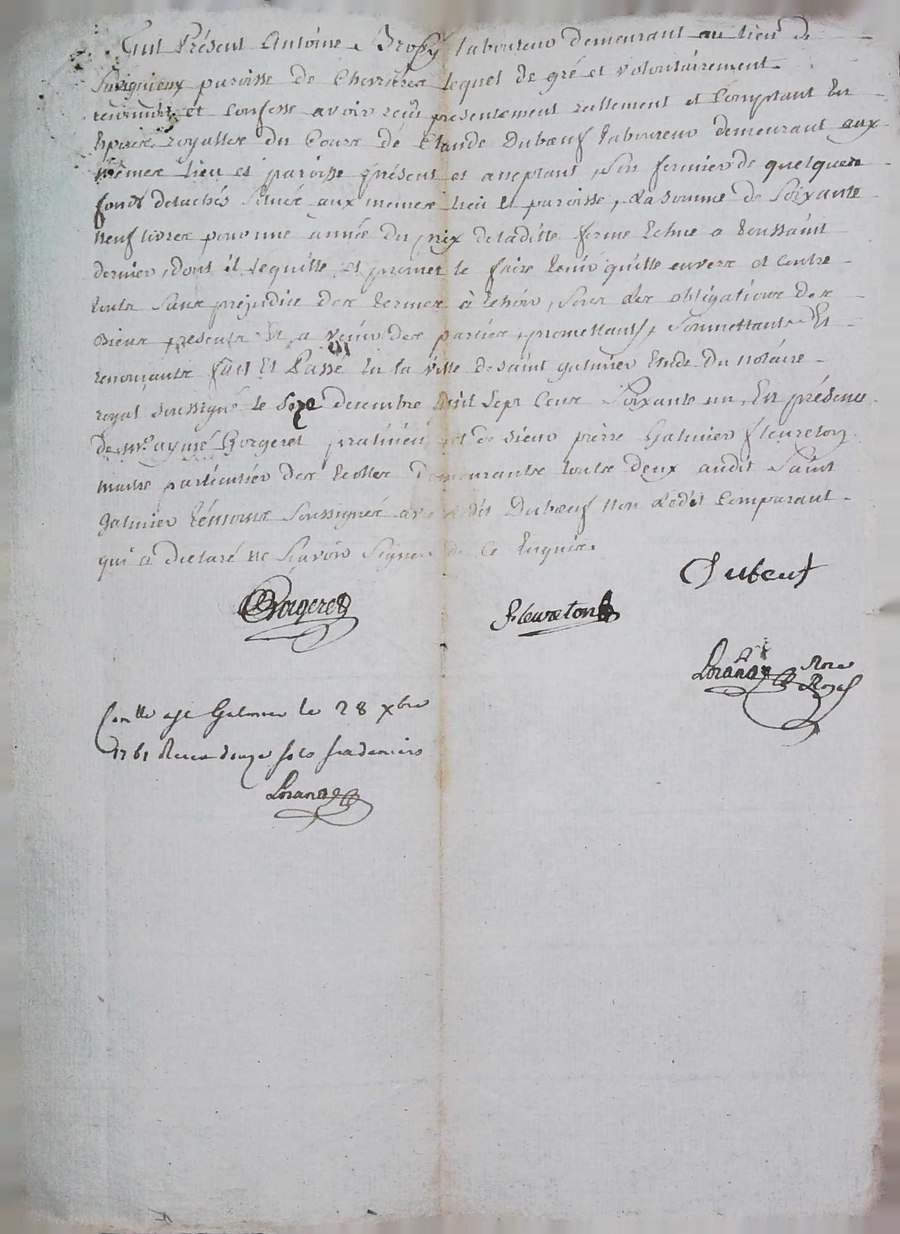 Fut Présent Antoine Brossy laboureur demeurant au lieu de
Savignieux paroisse de Chevrieres lequel de gré et volontairement
reconnoit et confesse avoir reçu presentement reellement et Comptant En
Especes royalles du Cours de Claude Duboeuf laboureur demeurant aux
mêmes lieu et paroisse présent et acceptant, son fermier de quelques
fonds detachés Situés aux mêmes lieu et paroisse, La somme de Soixante
neuf livres pour une année du prix de laditte ferme Echue a toussaint
dernier, dont il le quitte et promet le faire tenir quitte envers et contre
touts Sans prejudice des termes à Echoir, sous les obligations des
biens presents et a venir des parties, promettants, Soumettants Et
renonçants fait Et Passé En la ville de saint galmier Etude du notaire
royal soussigné le decembre Mil Sept Cents Soixante un, En présence
de Mre. aymé Borgeret praticien et de sieur pierre Galmier fleureton
maitre particulier des Ecolles demeurants touts deux audit Saint
galmier témoins Soussignés avec Ledit Duboeuf Non Ledit Comparant
qui a declaré ne Scavoir Signer de Ce Enquis.
Dubeuf
Borgeret
Fleureton
Lorano Nore
Royal
Conlle a St Galmier le 28 xbre
1761 Recu douze sols six deniers
Lorano